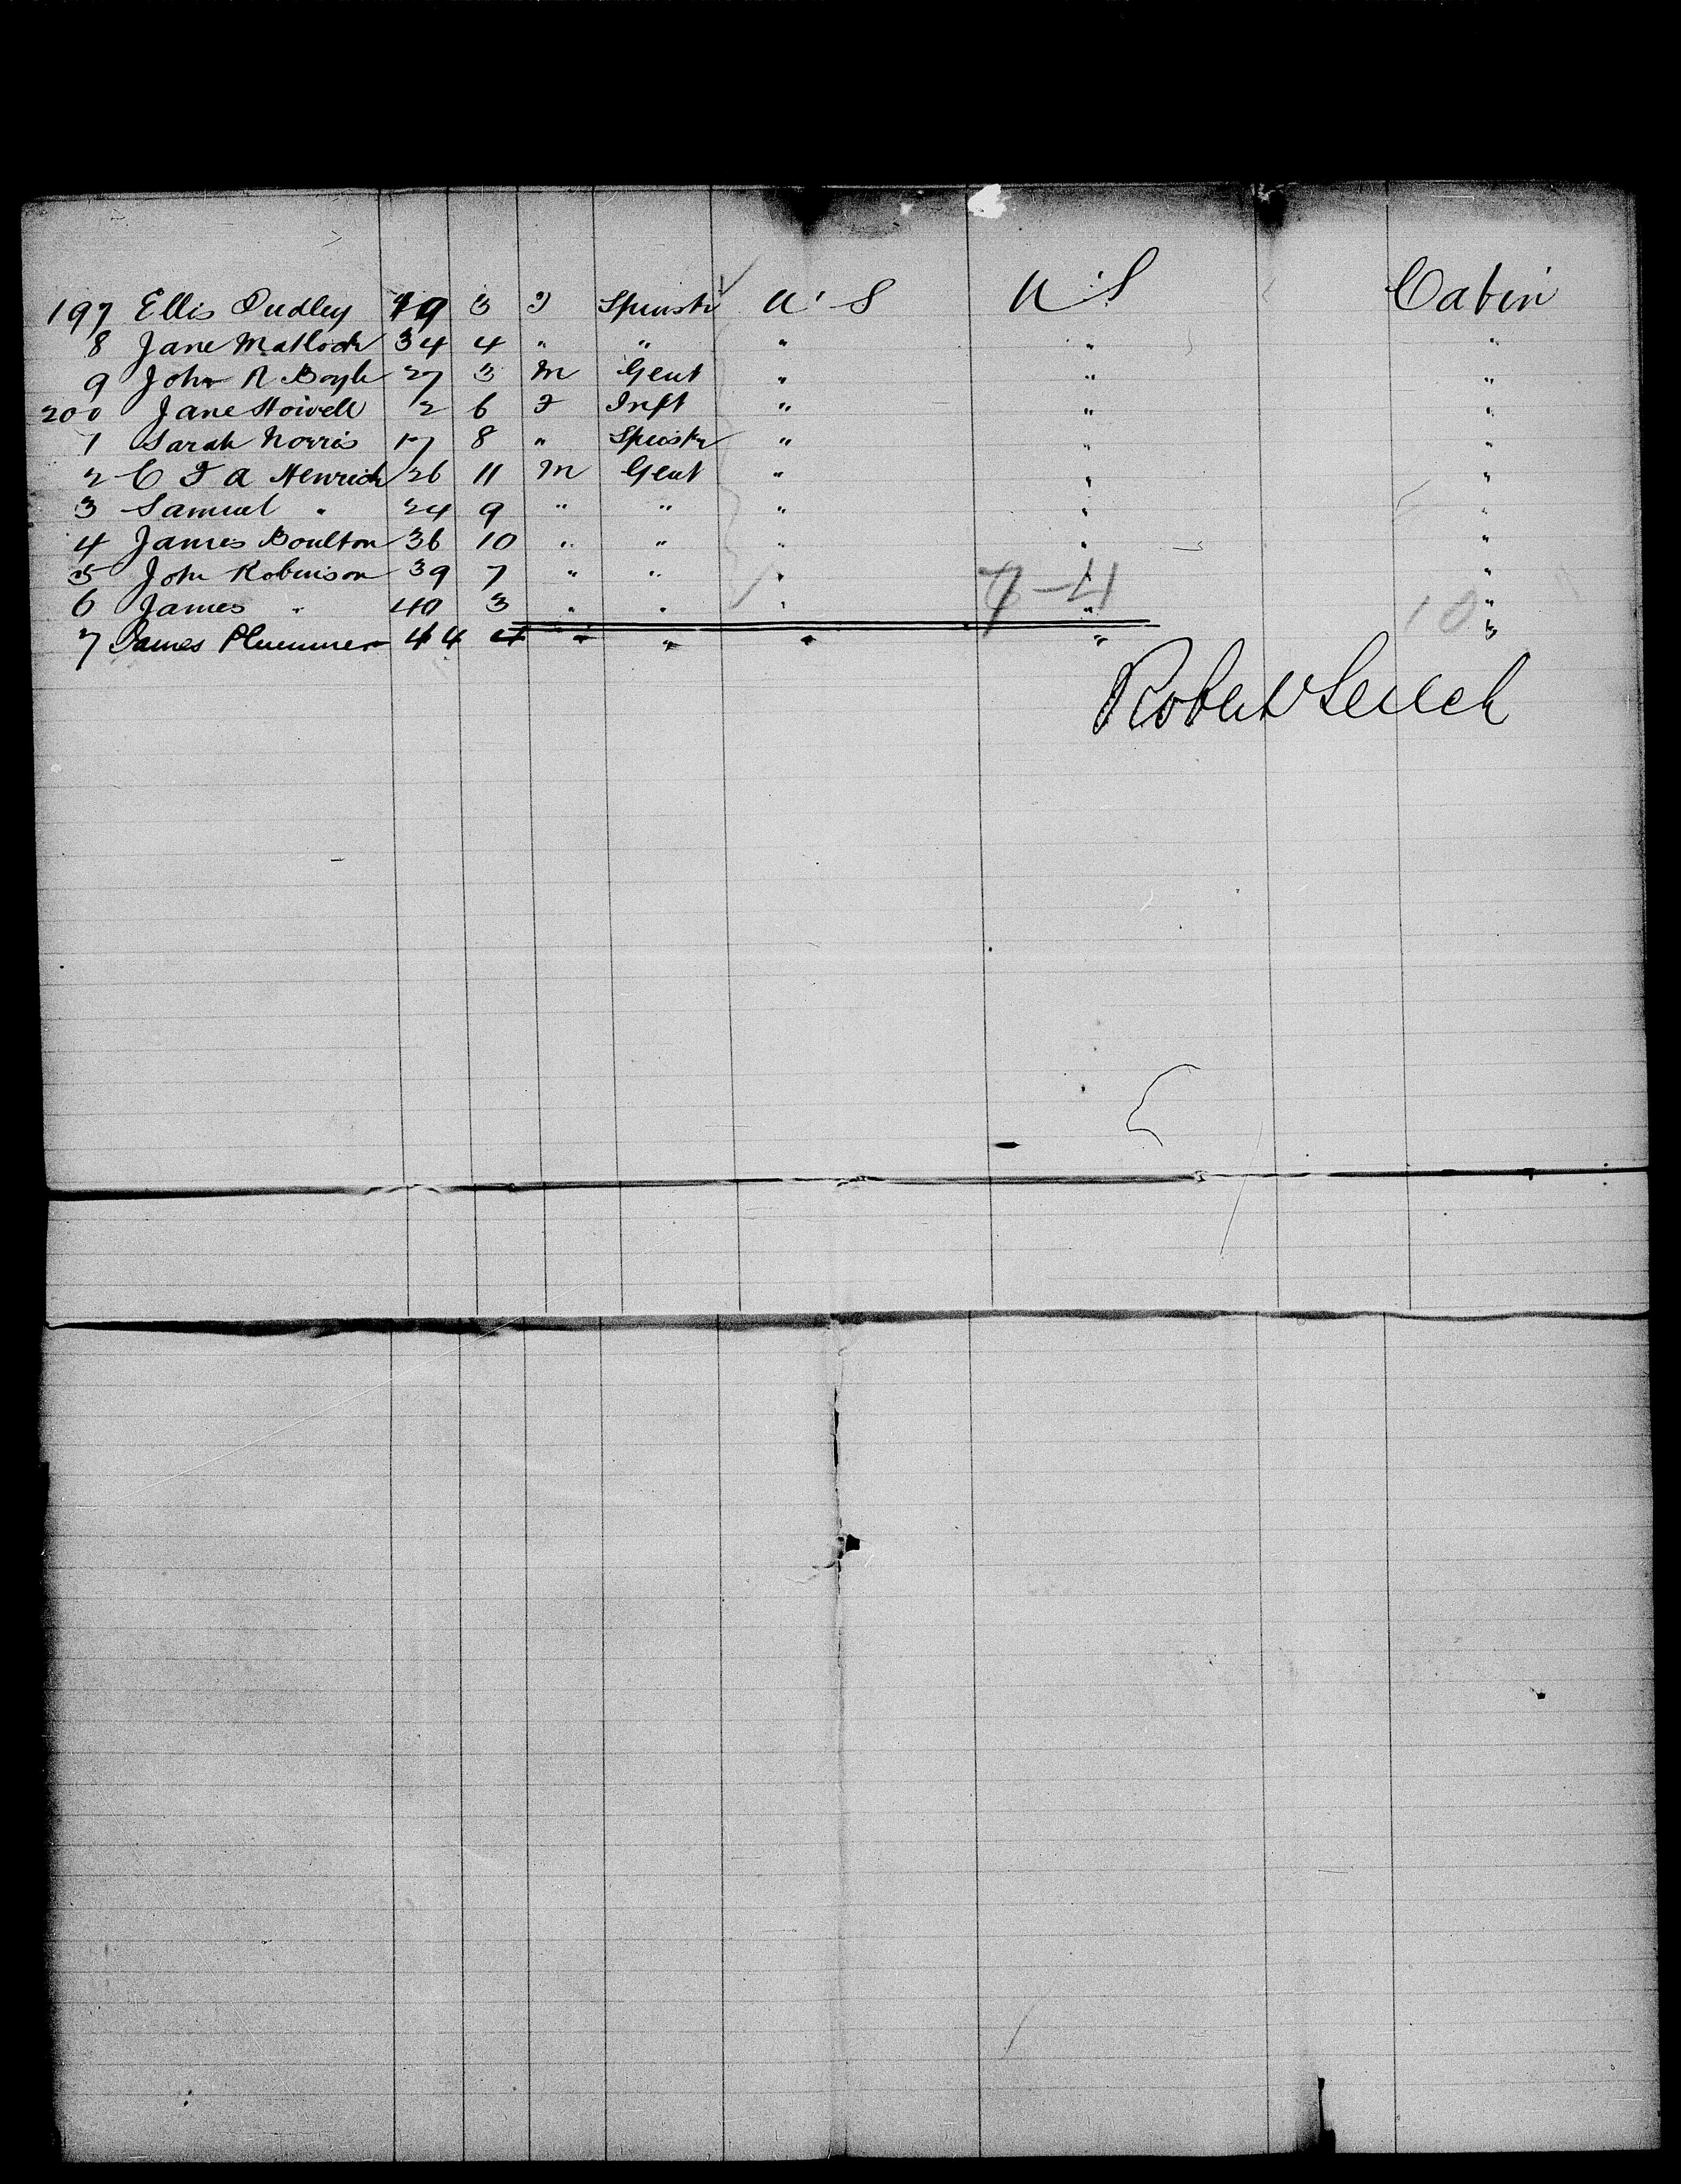 197 Ellis Dudley 19 3 F Spinstr U S U S Cabin
8 Jane Matlock 34 4 " " " " "
9 John A Boyle 27 3 M Gent " " "
200 Jane Howell 2 6 F Inft " " "
1 Sarah Norris 17 8 " Spinstr " " "
2 C F A Henrich 26 11 M Gent " " "
3 Samuel " 24 9 " " " " "
4 James Boulton 36 10 " " " " "
5 John Robinson 39 7 " " " " "
6 James " 40 3 " " " " "
10
7 James Plummer 44 4 " " " " "
Robert Leech